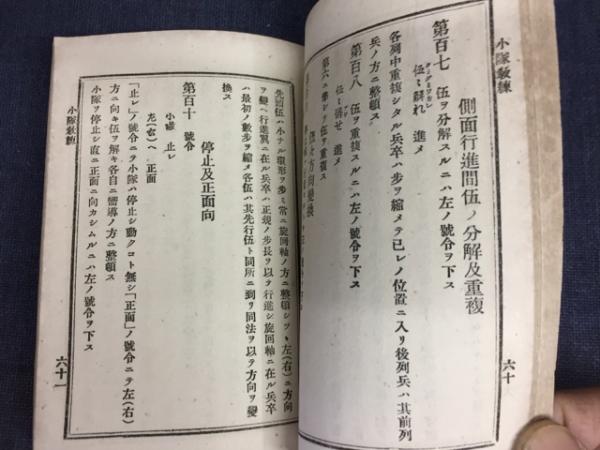 小隊教練
側面行進間伍ノ分解及重複
第百七 伍ヲ分解スルニハ左ノ號令ヲ下ス
伍々離れ 進メ
各列中重複シタル兵卒ハ步ヲ縮メテ已レノ位置ニ入リ後列兵ハ其前列
兵ノ方ニ整頓ス
第百八 伍ヲ重複スルニハ左ノ號令ヲ下ス
伍々併セ 進メ
六十
先頭伍ハ小ナル環形ヲ步ミ常ニ旋回軸ノ方ニ整頓シツヽ左(右)ニ方向
ヲ變ヘ行進翼ニ在ル兵卒ハ正規ノ步長ヲ以テ行進シ旋回軸ニ在ル兵卒
ハ最初ノ數步ヲ縮メ各伍ハ其先行伍ト同所ニ到リ同法ヲ以テ方向ヲ變
換ス
停止及正面向
第百十 號令
小隊 止レ
左(右)ヘ 正面
「止レ」ノ號令ニテ小隊ハ停止シ動クコト無シ「正面」ノ號令ニテ左(右)
方ニ向キ伍ヲ解キ各自ニ嚮導ノ方ニ整頓ス
小隊ヲ停止シ直ニ正面ニ向カシムルニハ左ノ號令ヲ下ス
小隊敎練
六十一